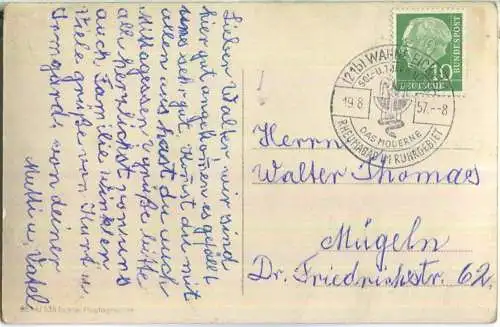 Lieber Walter wir sind
hier gut angekommen es gefällt
uns sehr gut. Musst du mit
allen ins hast du auch
Mittagessen u grüße bitte
alle herzlichst von uns
auch Familie Winklen
Viele grüße von Kurt u.
Irmgard, von deiner
Mutti u. Vati
(21b) WANNE-EICKEL
SOL- U. THERMAL
19.8. 57.-8
DAS MODERNE
RHEUMABAD IM RUHRGEBIET
10
DEUTSCHE
BUNDESPOST
Herrn
Walter Thomas
Mügeln
Dr. Friedrichstr. 62.